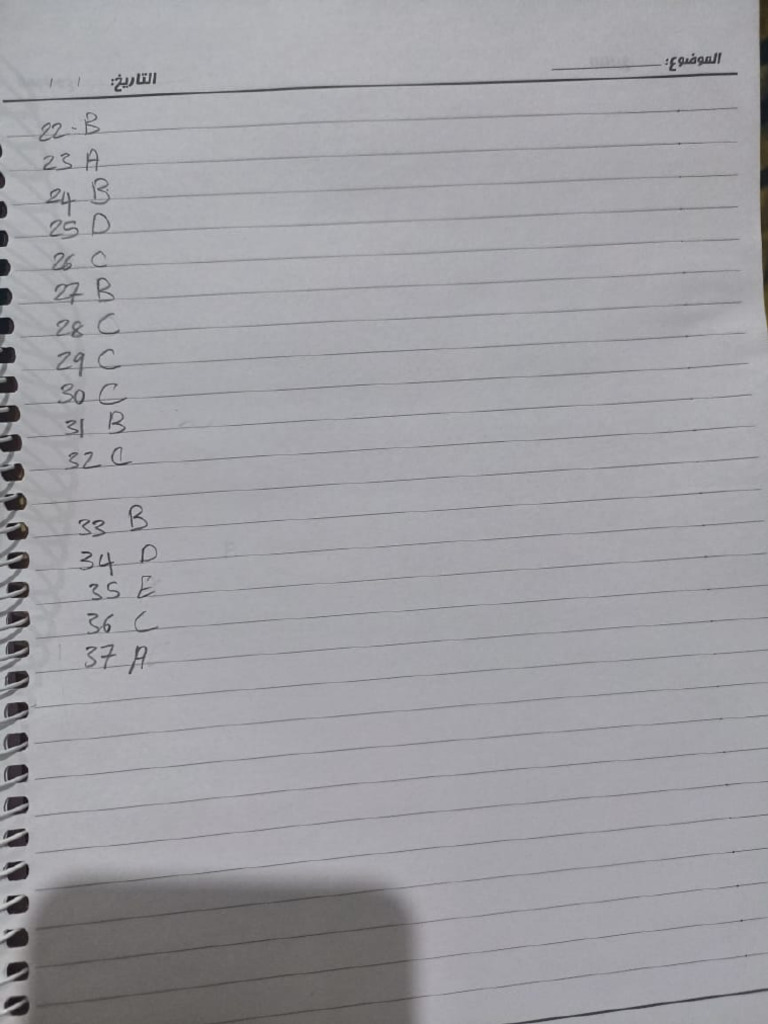 الموضوع:
التاريخ: / /
22-B
23 A
24 B
25 D
26 C
27 B
28 C
29 C
30 C
31 B
32 C
33 B
34 D
35 E
36 C
37 A